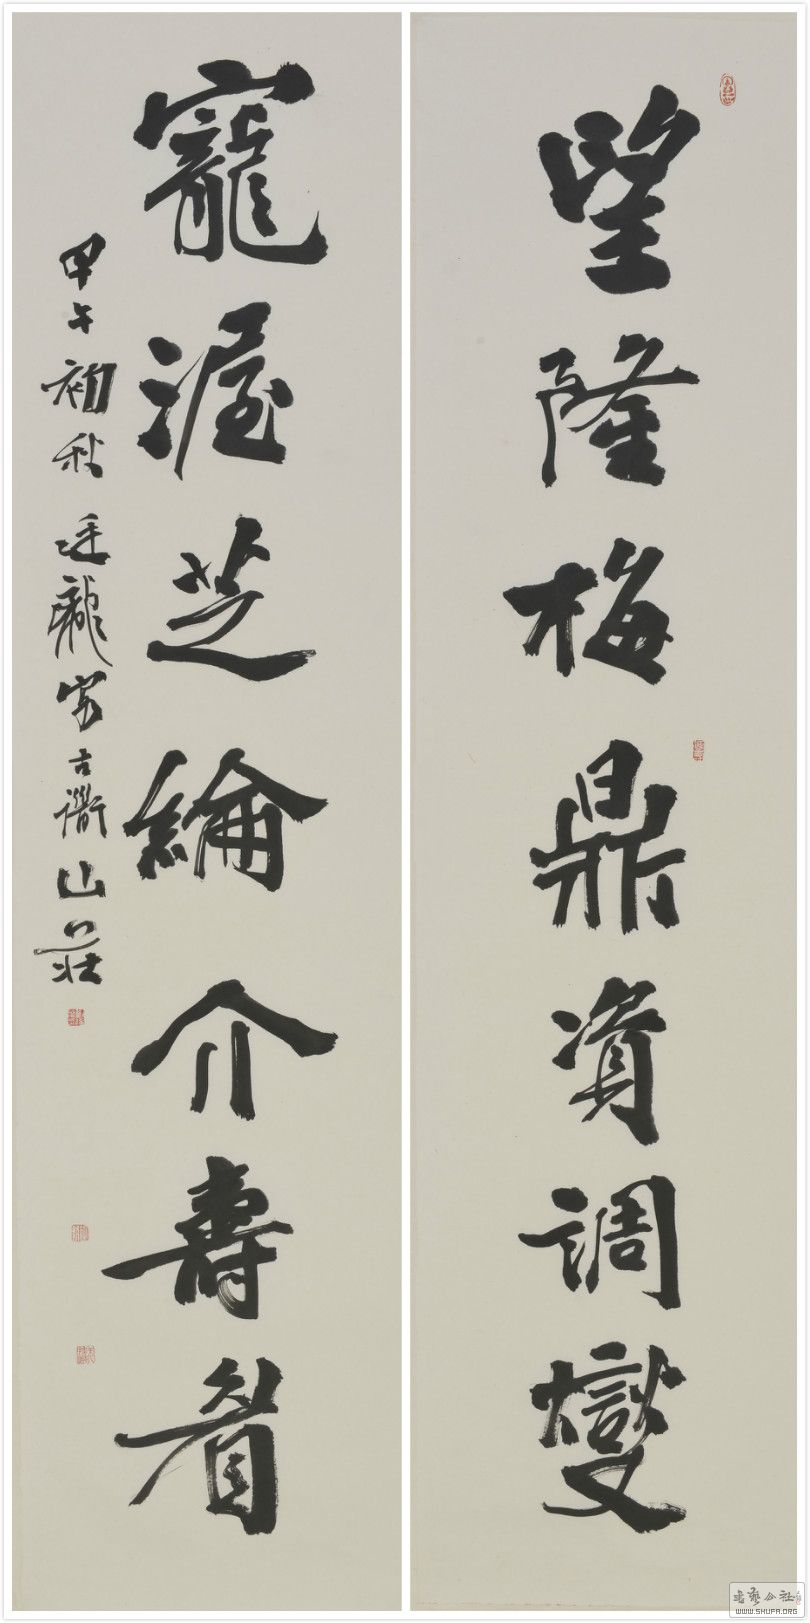 望隆梅鼎資調燮
寵渥芝綸介壽眉
甲午初秋廷龍寫古衢山莊
書藝公社
WWW.SHUFA.ORG